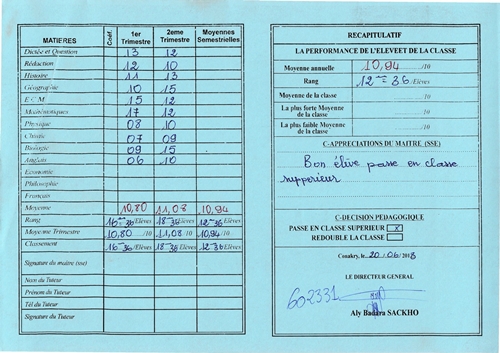 MATIERES Coéf. 1er Trimestre 2eme Trimestre Moyennes Semestrielles
Dictée et Question 13 12
Rédaction 12 10
Histoire 11 13
Géographie 10 15
E C M 15 12
Mathématiques 17 12
Physique 08 10
Chimie 07 09
Biologie 09 15
Anglais 06 10
Economie
Philosophie
Français
Moyenne 10,80 11,08 10,94
Rang 16e 36 /Elèves 18e 36 /Elèves 12e 36 /Elèves
Moyenne Trimestre 10,80 /10 11,08 /10 10,94 /10
Classement 16e 36 /Elèves 18e 36 /Elèves 12e 36 /Elèves
Signature du maître (sse)
Nom du Tuteur
Prénom du Tuteur
Tél du Tuteur
Signature du Tuteur
RECAPITULATIF
LA PERFORMANCE DE L'ELEVEET DE LA CLASSE
Moyenne annuelle 10,94 /10
Rang 12e 36 /Elèves
Moyenne de la classe /10
La plus forte Moyenne de la classe /10
La plus faible Moyenne de la classe /10
C-APPRECIATIONS DU MAITRE (SSE)
Bon élève passe en classe
supperieur
C-DECISION PEDAGOGIQUE
PASSE EN CLASSE SUPERIEUR X
REDOUBLE LA CLASSE
Conakry, le 20/06/2018
LE DIRECTEUR GENERAL
602331
Aly Badara SACKHO